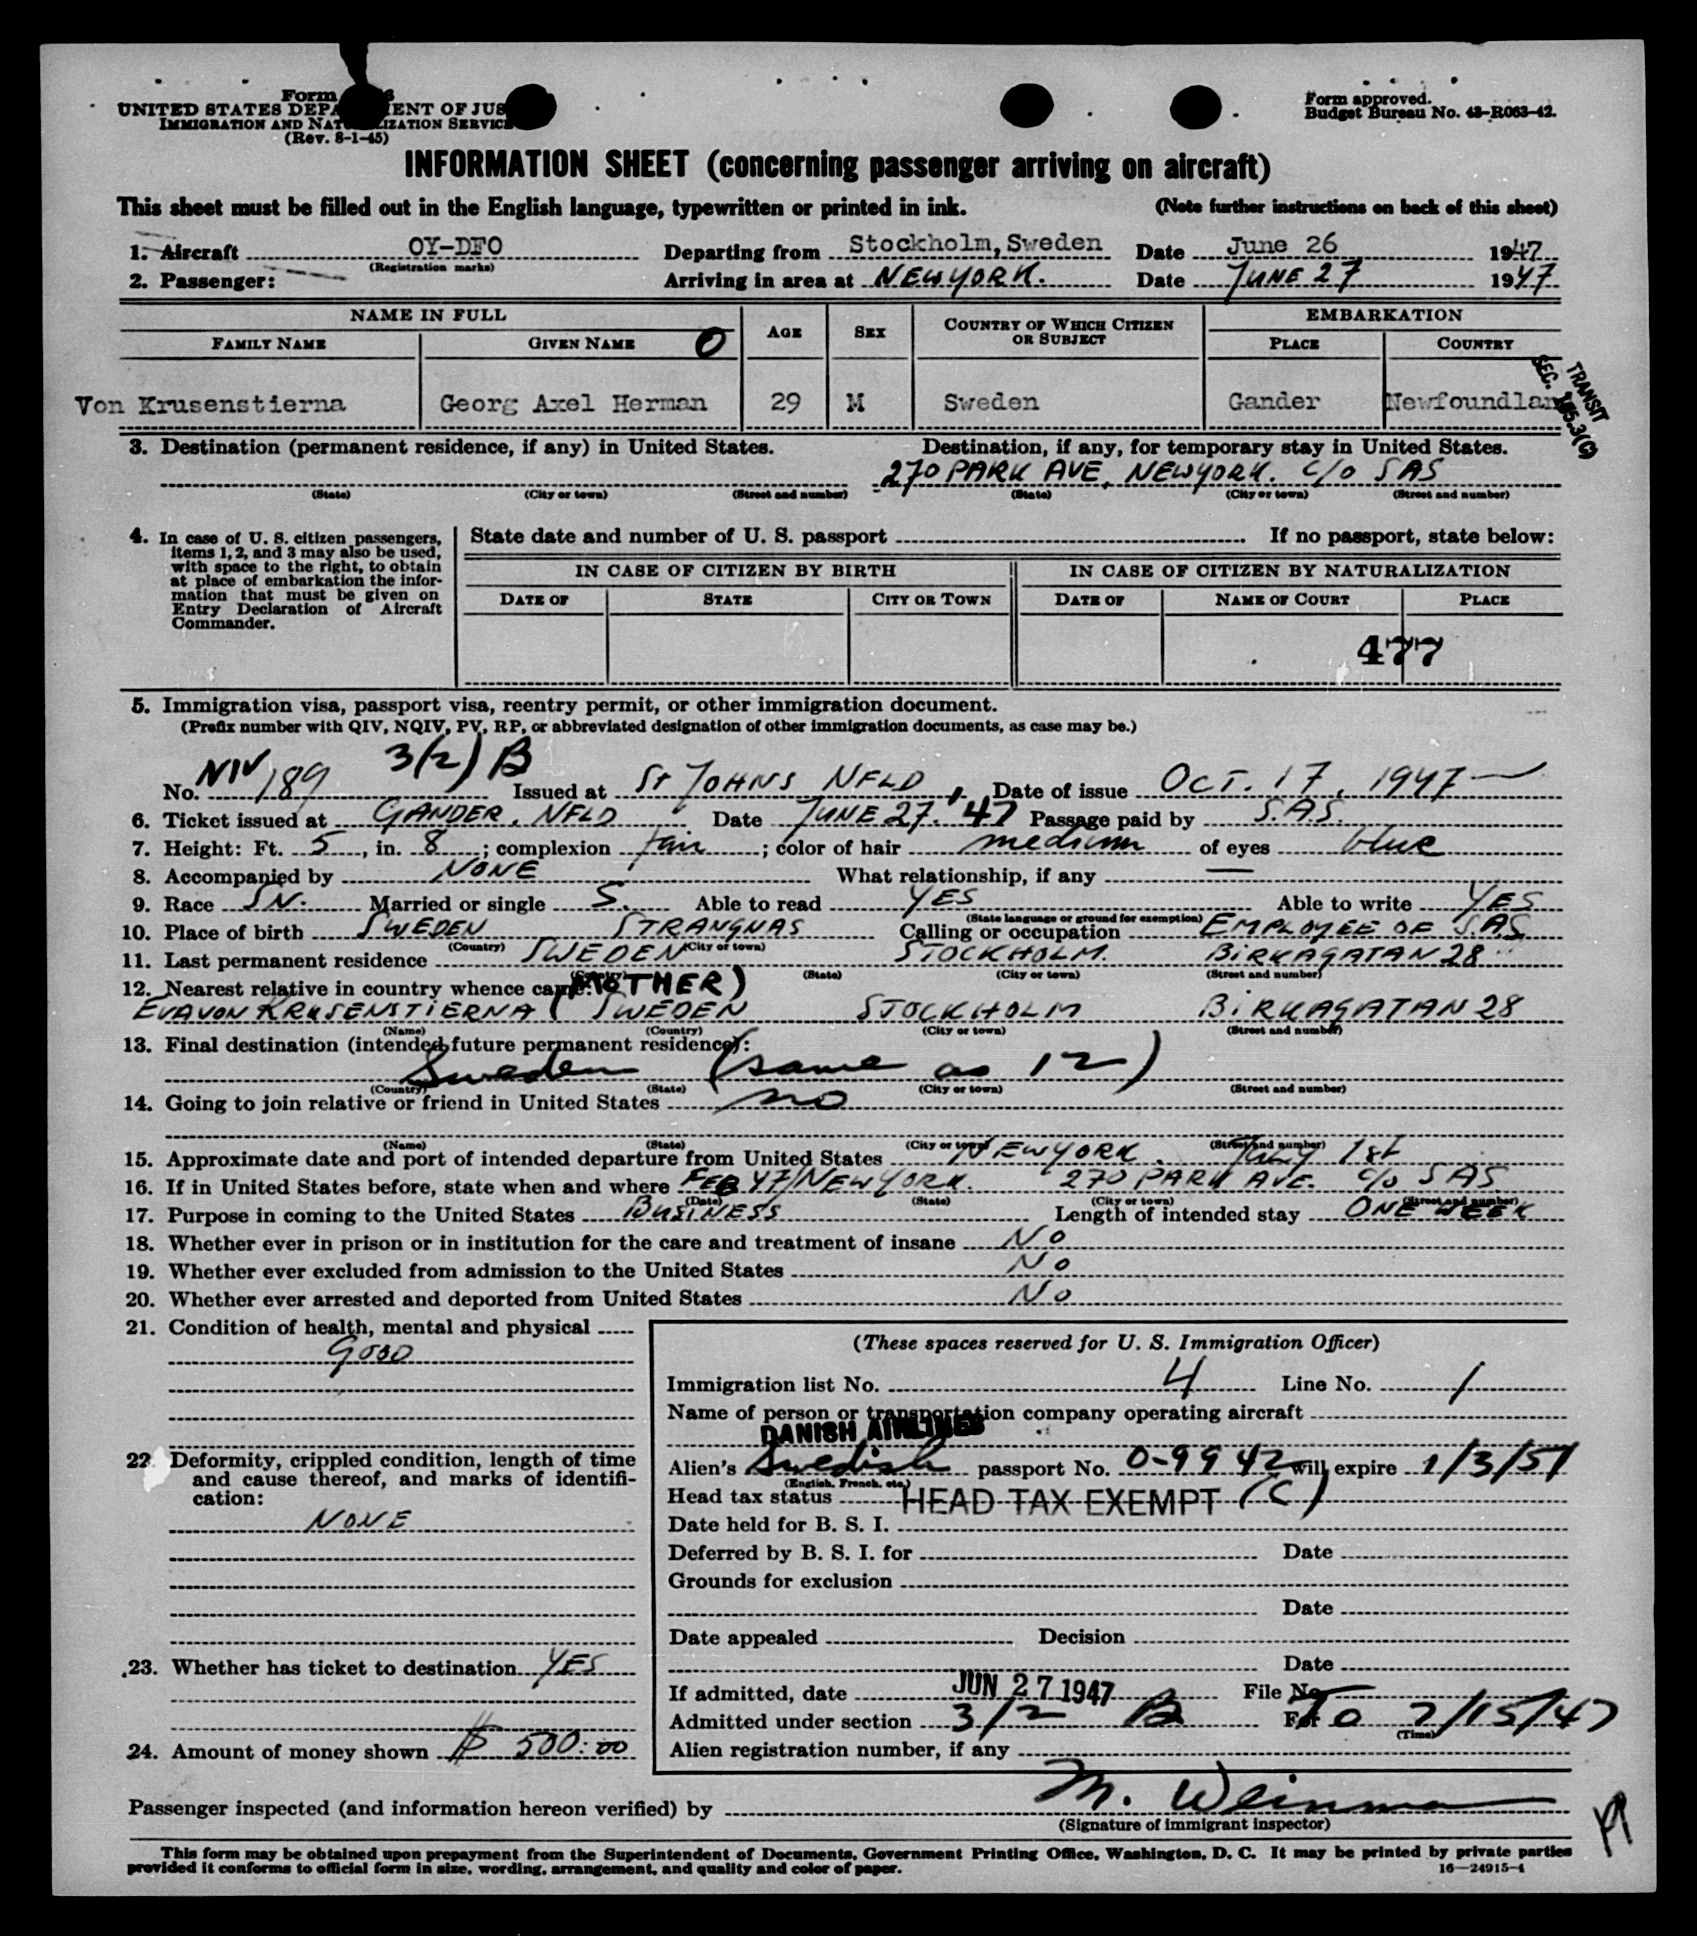 Form
UNITED STATES DEPARTMENT OF JUS
IMMIGRATION AND NATURALIZATION SERVICE
(Rev. 8-1-45)
Form approved.
Budget Bureau No. 43-R063-42.
INFORMATION SHEET (concerning passenger arriving on aircraft)
This sheet must be filled out in the English language, typewritten or printed in ink. (Note further instructions on back of this sheet)
1. Aircraft OY-DFO Departing from Stockholm, Sweden Date June 26 1947
(Registration marks)
2. Passenger: Arriving in area at NEWYORK. Date JUNE 27 1947
NAME IN FULL AGE SEX COUNTRY OF WHICH CITIZEN OR SUBJECT EMBARKATION
FAMILY NAME GIVEN NAME O PLACE COUNTRY
Von Krusenstierna Georg Axel Herman 29 M Sweden Gander Newfoundlan
TRANSIT
SEC. 3(C)
3. Destination (permanent residence, if any) in United States. Destination, if any, for temporary stay in United States.
270 PARK AVE, NEWYORK. c/o SAS
(State) (City or town) (Street and number) (State) (City or town) (Street and number)
4. In case of U. S. citizen passengers, items 1, 2, and 3 may also be used, with space to the right, to obtain at place of embarkation the information that must be given on Entry Declaration of Aircraft Commander.
State date and number of U. S. passport If no passport, state below:
IN CASE OF CITIZEN BY BIRTH IN CASE OF CITIZEN BY NATURALIZATION
DATE OF STATE CITY OR TOWN DATE OF NAME OF COURT PLACE
477
5. Immigration visa, passport visa, reentry permit, or other immigration document.
(Prefix number with QIV, NQIV, PV, RP, or abbreviated designation of other immigration documents, as case may be.)
3(2) B
No. NIV 189 Issued at St JOHNS NFLD, Date of issue OCT. 17, 1947
6. Ticket issued at GANDER, NFLD Date JUNE 27. '47 Passage paid by S.A.S.
7. Height: Ft. 5, in. 8; complexion fair; color of hair medium of eyes blue
8. Accompanied by NONE What relationship, if any —
9. Race SN. Married or single S. Able to read YES Able to write YES
(State language or ground for exemption)
10. Place of birth SWEDEN STRANGNAS Calling or occupation EMPLOYEE OF S.A.S
(Country) (City or town)
11. Last permanent residence SWEDEN STOCKHOLM. BIRKAGATAN 28
(Country) (State) (City or town) (Street and number)
12. Nearest relative in country whence came: (MOTHER)
EVA VON KRUSENSTIERNA ( SWEDEN STOCKHOLM BIRKAGATAN 28
(Name) (Country) (City or town) (Street and number)
13. Final destination (intended future permanent residence):
Sweden (same as 12)
(Country) (State) (City or town) (Street and number)
14. Going to join relative or friend in United States no
(Name) (State) (City or town) (Street and number)
15. Approximate date and port of intended departure from United States NEWYORK. July 1st
16. If in United States before, state when and where FEB 47/NEWYORK. 270 PARK AVE. c/o SAS
(Date) (State) (City or town) (Street and number)
17. Purpose in coming to the United States BUSINESS Length of intended stay ONE WEEK
18. Whether ever in prison or in institution for the care and treatment of insane No
19. Whether ever excluded from admission to the United States No
20. Whether ever arrested and deported from United States No
21. Condition of health, mental and physical
GOOD
22. Deformity, crippled condition, length of time and cause thereof, and marks of identification:
NONE
23. Whether has ticket to destination YES
24. Amount of money shown $ 500:00
(These spaces reserved for U. S. Immigration Officer)
Immigration list No. 4 Line No. 1
Name of person or transportation company operating aircraft
DANISH AIRLINES
Alien's Swedish passport No. 0-9942 will expire 1/3/51
(English, French, etc.)
Head tax status HEAD TAX EXEMPT (C)
Date held for B. S. I.
Deferred by B. S. I. for Date
Grounds for exclusion
Date
Date appealed Decision
Date
If admitted, date JUN 27 1947 File No.
Admitted under section 3/2 B For To 7/15/47
(Time)
Alien registration number, if any
Passenger inspected (and information hereon verified) by M. Weinman
(Signature of immigrant inspector)
This form may be obtained upon prepayment from the Superintendent of Documents, Government Printing Office, Washington, D. C. It may be printed by private parties
provided it conforms to official form in size, wording, arrangement, and quality and color of paper. 16—24915-4